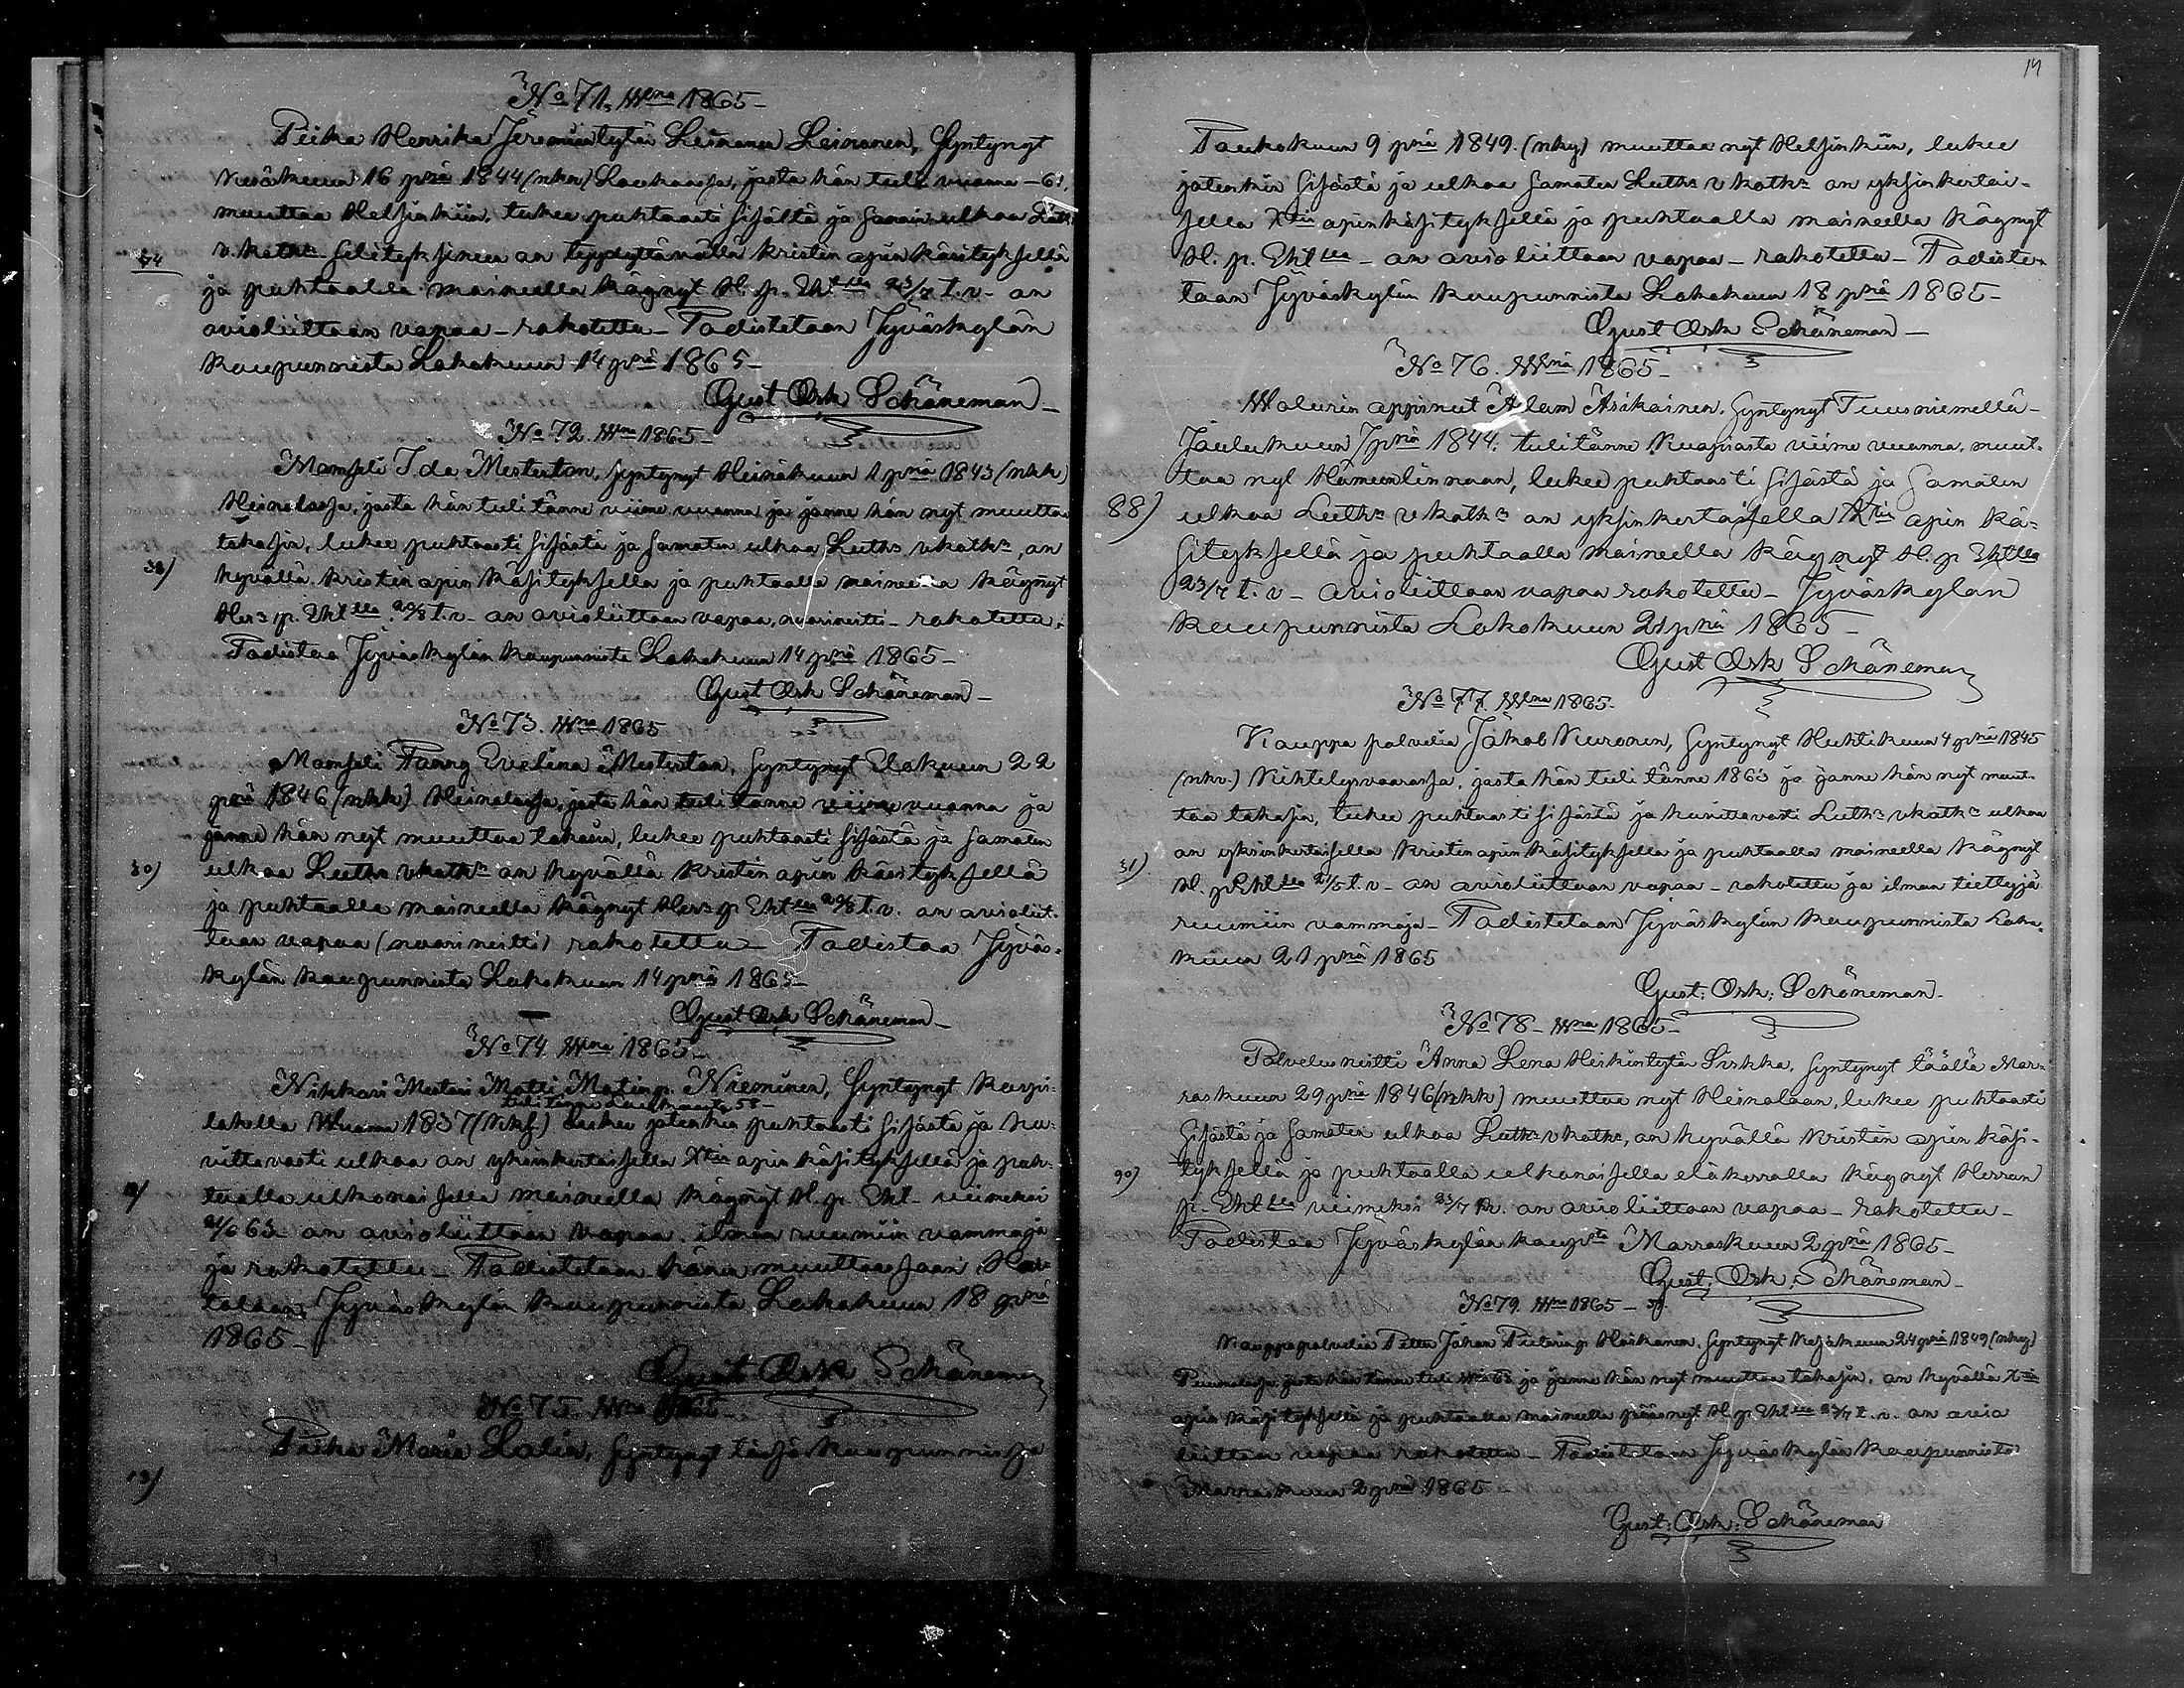 No 71. Wna 1865-
Piika Henrika Jeremiantytär Leinonen Leinonen, syntynyt
Kesäkuun 16 pnä 1844 (nkn) Laukaassa, josta hän tuli vuanna -61,
muuttaa Helsinkiin, lukee puhtaasti sisältä ja samoin ulkoa Luth
v. kathn selityksineen on tyydyttävällä kristin opin käsityksellä
54
ja puhtaalla maineella käynyt H. p. Ehtlla 23/7 t.v. on
avioliittoon vapaa - rokotettu - Todistetaan Jyväskylän
Kaupunnista Lokakuun 14 pnä 1865-
Gust Osk Schöneman-
No 72. Wna 1865-
Mamseli Ida Mesterton, syntynyt Heinäkuun 1 pnä 1843 (nkk)
Heinolassa, josta hän tuli tänne viime vuanna ja jonne hän nyt muuttaa
takasin, lukee puhtaasti sisästä ja samaten ulkoa Luth vkathn, on
hyvällä kristin opin käsityksella ja puhtaalla maineella käynyt
Her: p. Ehtlla 20/8 t.v- on avioliittoon vapaa, nuorineitti - rokotettu.
Todistaa Jyväskylän Kaupunnista Lokakuun 14 pnä 1865-
Gust Osk Schöneman-
No 73. Wna 1865
Mamseli Fanny Evelina Mesterton, syntynyt Elokuun 22
pnä 1846 (nkk) Heinolassa, josta hän tuli tänne viime vuanna ja
jonne hän nyt muuttaa takasin, lukee puhtaasti sisästä ja samaten
30)
ulkoa Luthn vkathn on hyvällä kristin opin käsityksellä
ja puhtaalla maineella käynyt Her: p Ehtlla 20/8 t.v. on avioliit-
toon vapaa (nuorineitti) rokotettu - Todistaa Jyväs-
kylän Kaupunnista Lokakuun 14 pnä 1865-
Gust Osk Schöneman-
No 74. Wna 1865-
Nikkari Mestari Matti Matinp. Nieminen, syntynyt Korpi-
tuli tänne 58-
lahella Wuanna 1837 (nkf.) lukee jotenkin puhtaasti sisästä ja ku-
vittavasti ulkoa on yksinkertaisella Xtin opin käsityksellä ja puh-
taalla ulkonaisella maineella käynyt H. p. Eht- viimeksi
21/6 63 on avioliittoon vapaa, ilman ruumiin vammoja
ja rokotettu - Todistetaan hänen muuttaessaan
Jyväskylän Kaupunnista Lokakuun 18 pnä
1865-
Gust Osk Schöneman
No 75. Wna 1865-
Piika Maria Lolin, syntynyt tässä Kaupunnissa
14
Toukokuun 9 pnä 1849. (nky) muuttaa nyt Helsinkiin, lukee
jotenkin sisästä ja ulkoa samaten Luthn vkathn on yksinkertai-
sella Xtin opin käsityksellä ja puhtaalla maineella käynyt
H. p. Ehtlla - on avioliittoon vapaa - rokotettu - Todiste-
taan Jyväskylän Kaupunnista Lokakuun 18 pnä 1865-
Gust Osk Schöneman-
No 76. Wna 1865-
Walurin oppinut Alam Asikainen, syntynyt Tuusniemellä-
Joulukuun 7 pnä 1844. tuli tänne Kuopiosta viime vuanna, muut-
taa nyt Hämeenlinnaan, lukee puhtaasti sisästä ja samaten
88)
ulkoa Luthn vkathn on yksinkertaisella Xtin opin kä-
sityksellä ja puhtaalla maineella käynyt H. p Ehtlla
23/7 t. v- avioliittoon vapaa rokotettu - Jyväskylän
Kaupunnista Lokokuun 21 pnä 1865-
Gust Osk Schöneman
No 77. Wna 1865-
Kauppa palvelia Jakob Kuronen, syntynyt Huhtikuun 4 pnä 1845
(nkv.) Kihtelysvaarassa, josta hän tuli tänne 1863 ja jonne hän nyt muut-
taa takasin, lukee puhtaasti sisästä ja kuvittavasti Luthn vkathn ulkoa
on yksinkertaisella kristin opin käsityksella ja puhtaalla maineella käynyt
31)
H. p Ehtlla 21/5 t. v- on avioliittoon vapaa - rokotettu ja ilman tiettyjä
ruumiin vammoja - Todistetaan Jyväskylän Kaupunnista Loka-
kuun 21 pnä 1865
Gust: Osk: Schöneman-
No 78- Wna 1865-
Palvelu neitti Anna Lena Heikintytär Siskka, syntynyt täällä Mar-
raskuun 29 pnä 1846 (nkk) muuttaa nyt Heinolaan, lukee puhtaasti
sisästä ja samaten ulkoa Luthn vkathn, on hyvällä kristin opin käsi-
90)
tyksellä ja puhtaalla ulkonaisella eläkerralla käynyt Herran
p. Ehtlla viimeksi 23/7 on avioliittoon vapaa - rokotettu-
Todistaa Jyväskylän kaupsta Marraskuun 2 pnä 1865-
Gust: Osk: Schöneman-
No 79. Wna 1865-
Kauppapalvelia Petter Johan Pieterinp Hoskonen, syntynyt Kesäkuun 24 pnä 1849 (nky)
josta hän tänne tuli 63 ja jonne hän nyt muuttaa takasin, on hyvällä Xtin
opin käsityksellä ja puhtaalla maineella käynyt H. p. Ehtlla 23/7 t. v. on avio
liittoon vapaa rokotettu - Todistetaan Jyväskylän Kaupunnista
Marraskuun 2 pnä 1865
Gust: Osk: Schöneman